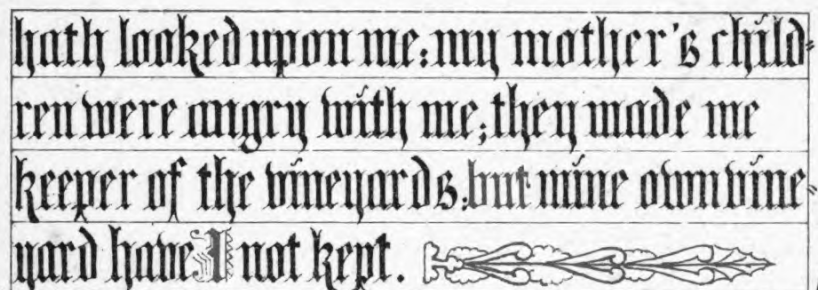 hath looked upon me: my mother's child-
ren were angry with me; they made me
keeper of the vineyards: but mine own vine-
yard have I not kept.